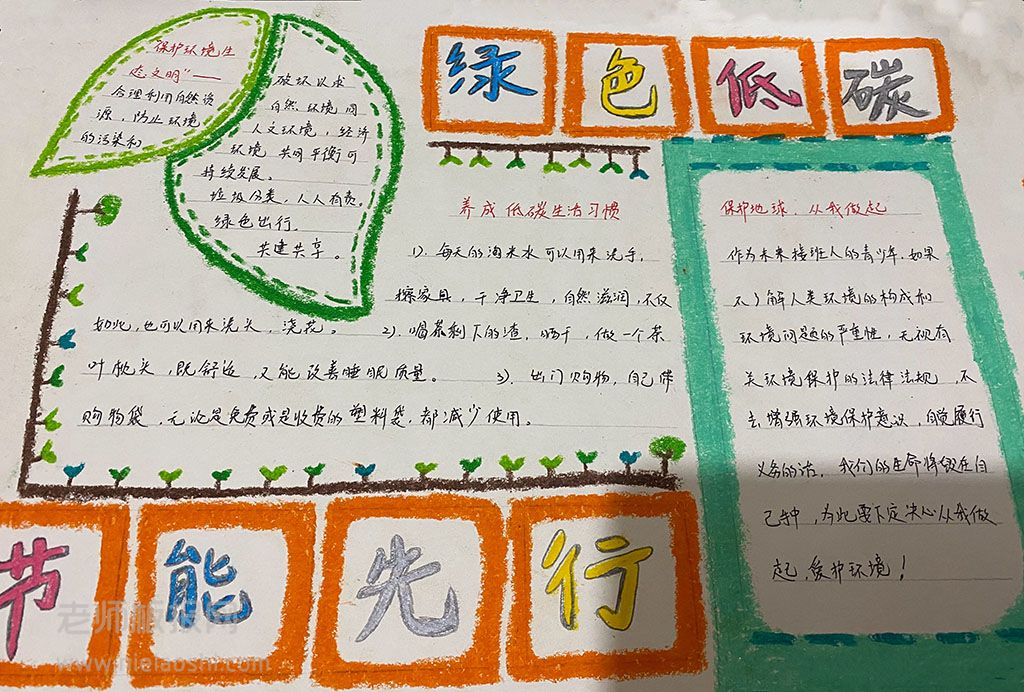 绿色低碳
保护环境生
态文明"——
合理利用自然资
源，防止环境
的污染和
破坏以求
自然环境同
人文环境，经济
环境共同平衡可
持续发展。
垃圾分类，人人有责。
绿色出行。
共建共享。
养成低碳生活习惯
1）.每天的淘米水可以用来洗手，
擦家具，干净卫生，自然滋润，不仅
如此，也可以用来洗头，浇花。 2）.喝茶剩下的渣，晒干，做一个茶
叶枕头，既舒适，又能改善睡眠质量。 3）.出门购物，自己带
购物袋，无论是免费或是收费的塑料袋，都减少使用。
保护地球．从我做起
作为未来接班人的青少年．如果
不了解人类环境的构成和
环境问题的严重性，无视有
关环境保护的法律法规，不
去增强环境保护意识，自觉履行
义务的话．我们的生命将毁在自
己手中，为此要下定决心从我做
起，爱护环境！
节能先行
老师板报网